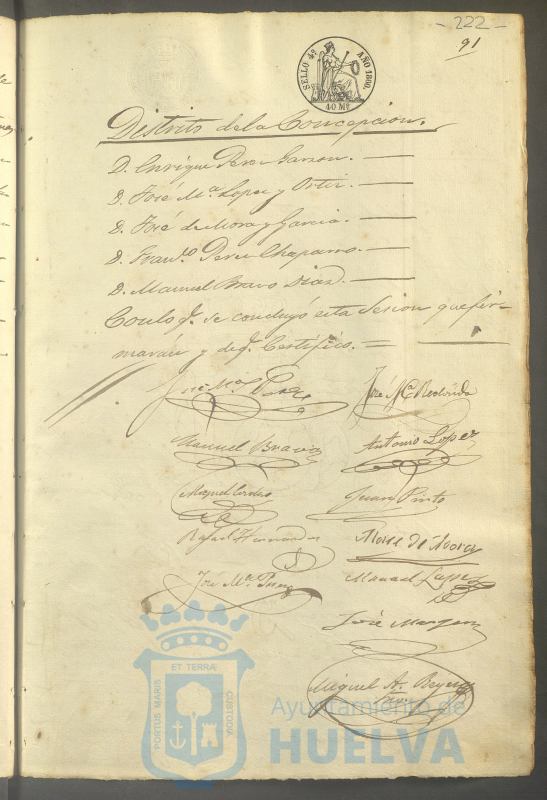 - 222 -
91
SELLO 4º AÑO 1860.
40 Ms
Distrito de la Concepcion.
D. Enrique Perez Garzon.
D. José Mª Lopez y Ortiz.
D. José de Mora y Garcia.
D. Franco Perez Chaparro.
D. Manuel Bravo Diaz.
Con lo q. se concluyó esta Sesion que fir-
marán y de q. Certifico. =
José Mª Perez José Mª Redondo
Manuel Bravo Antonio Lopez
Miguel Cordero Juan Pinto
Rafael Hernandez de Mora
José Mª Manuel Lopez
José
Miguel A. Reyes
PORTUS MARIS ET TERRÆ CUSTODIA
Ayuntamiento de
HUELVA